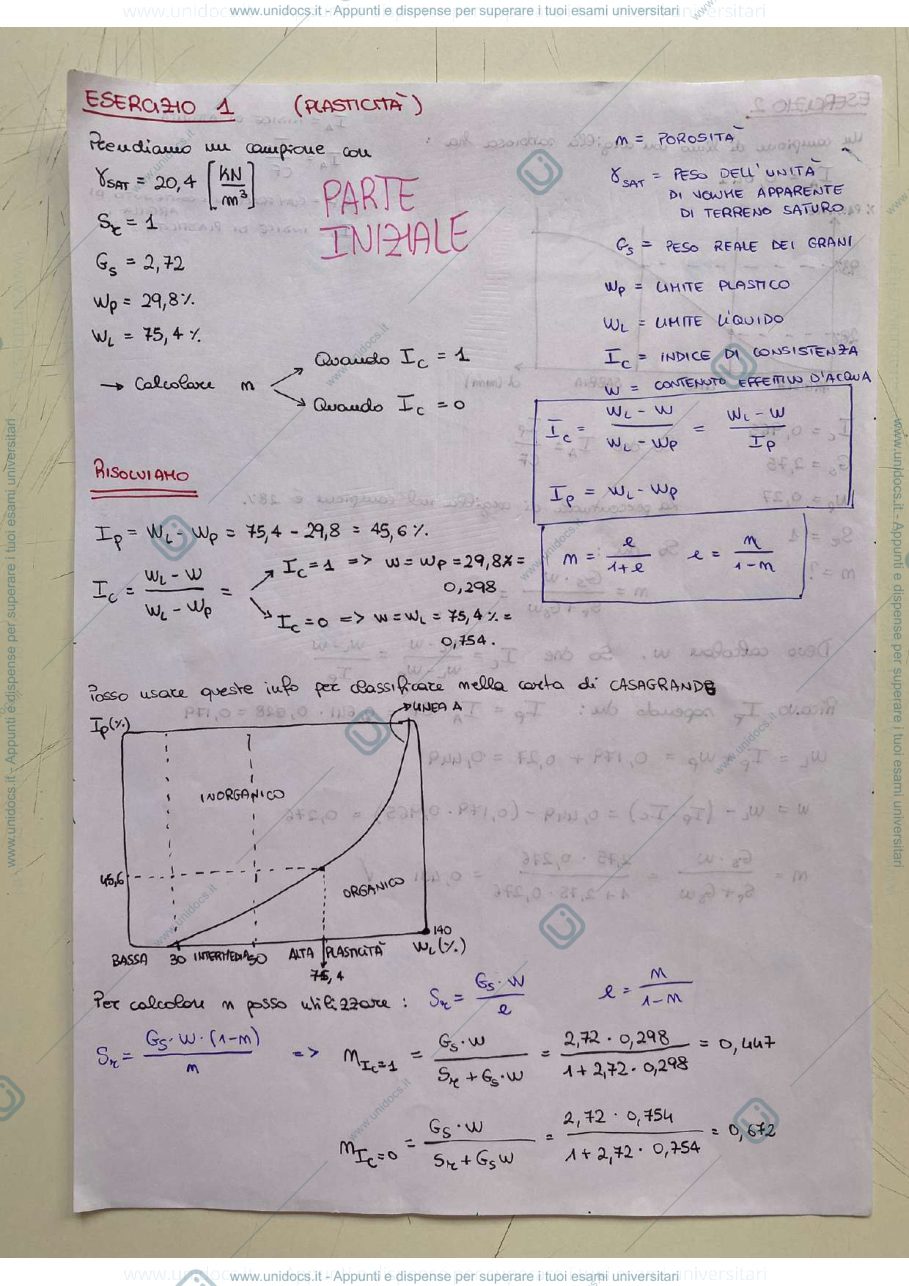 www.unidocs.it - Appunti e dispense per superare i tuoi esami universitari
ESERCIZIO 1 (PLASTICITÀ)
Prendiamo un campione con
γSAT = 20,4 [kN/m³]
Sr = 1
Gs = 2,72
Wp = 29,8%
WL = 75,4%
→ Calcolare n
Quando Ic = 1
Quando Ic = 0
PARTE
INIZIALE
n = POROSITÀ
γSAT = PESO DELL'UNITÀ
DI VOLUME APPARENTE
DI TERRENO SATURO
Gs = PESO REALE DEI GRANI
Wp = LIMITE PLASTICO
WL = LIMITE LIQUIDO
Ic = INDICE DI CONSISTENZA
W = CONTENUTO EFFETTIVO D'ACQUA
Ic = (WL - W)/(WL - Wp) = (WL - W)/Ip
Ip = WL - Wp
n = e/(1+e) e = n/(1-n)
RISOLVIAMO
Ip = WL - Wp = 75,4 - 29,8 = 45,6%
Ic = (WL - W)/(WL - Wp) =
Ic = 1 => W = Wp = 29,8% =
0,298
Ic = 0 => W = WL = 75,4% =
0,754.
Posso usare queste info per classificare nella carta di CASAGRANDE
Ip(%)
LINEA A
INORGANICO
45,6
ORGANICO
140
BASSA 30 INTERMEDIA 50 ALTA PLASTICITÀ WL(%)
75,4
Per calcolare n posso utilizzare : Sr = Gs·W/e e = n/(1-n)
Sr = Gs·W·(1-n)/n => nIc=1 = Gs·W/(Sr + Gs·W) = 2,72 · 0,298/(1+2,72·0,298) = 0,447
nIc=0 = Gs·W/(Sr + GsW) = 2,72 · 0,754/(1+2,72·0,754) = 0,672
www.unidocs.it - Appunti e dispense per superare i tuoi esami universitari